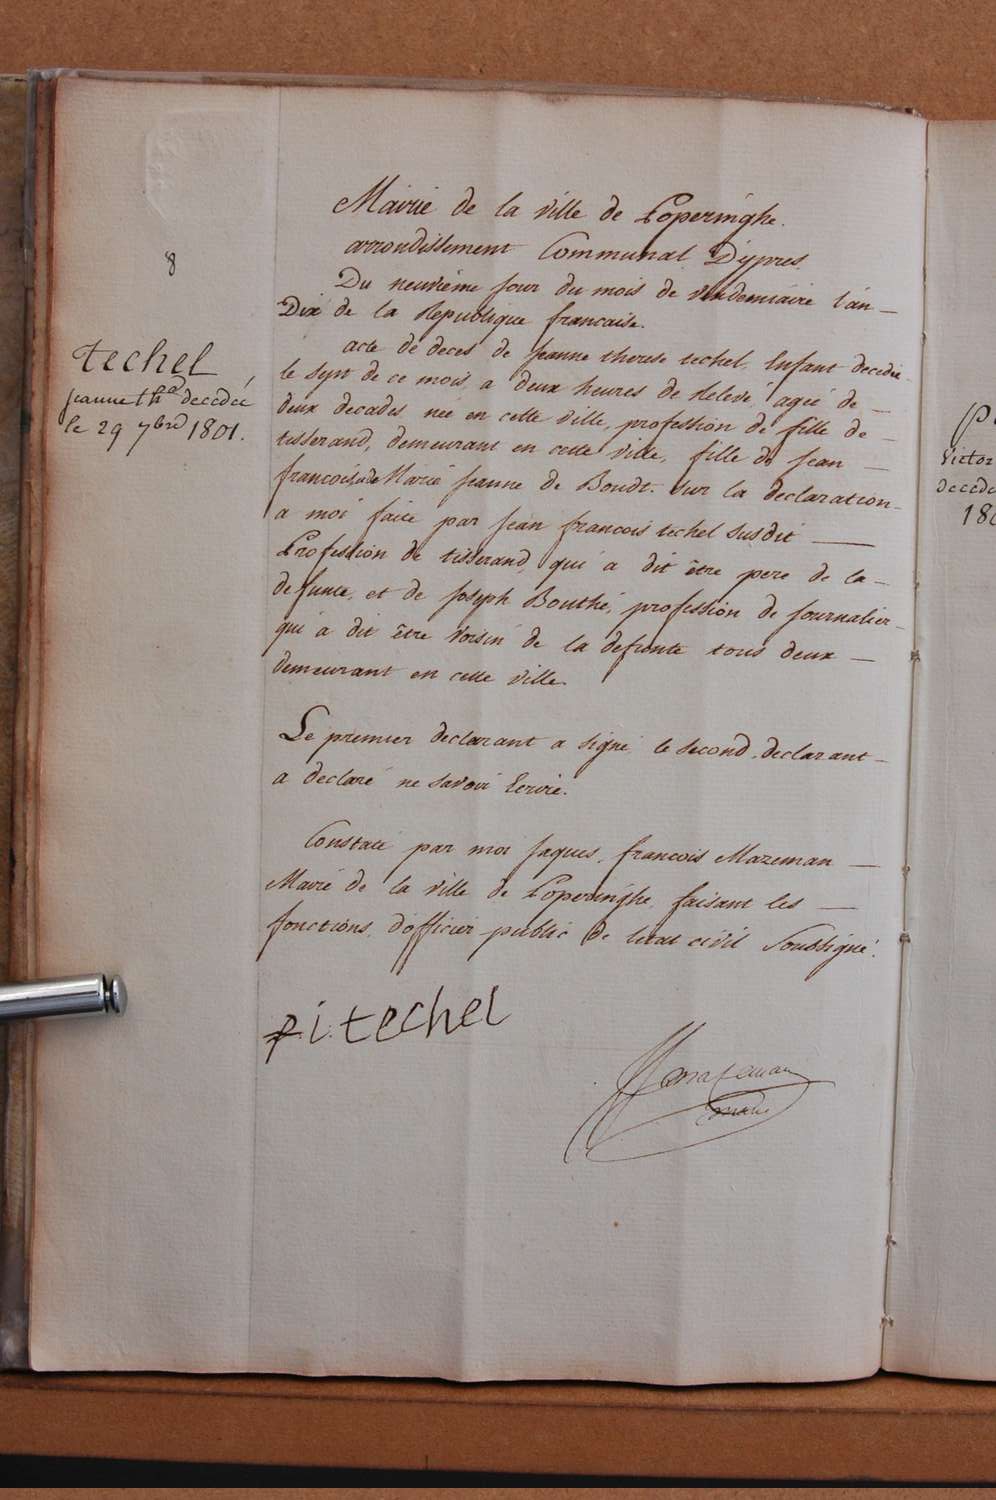 8
techel
jeanne th.a decedée
le 29 7bre 1801.
Mairie de la ville de Poperinghe.
arrondissement Communal D'ypres.
Du neuvième jour du mois de vendemiaire l'an —
Dix de la Republique francaise.
acte de deces de jeanne therese techel, Enfant decedée
le sept de ce mois, a deux heures de Relevé, agée de —
deux decades née en cette ville, profession de fille de —
tisserand, demeurant en cette ville, fille de jean —
francois, et de Marie jeanne de Boudt. sur la declaration —
a moi faite par jean francois techel susdit —
Profession de tisserand, qui a dit être pere de la —
defunte, et de joseph Bouthé, profession de journalier —
qui a dit être voisin de la defunte tous deux —
demeurant en cette ville.
Le premier declarant a signé le second declarant —
a declaré ne savoir Ecrire.
Constaté par moi jaques francois Mazeman —
Maire de la ville de Poperinghe, faisant les —
fonctions d'officier public de letat civil soussigné.
techel
Mazeman
maire
Victor
decedé